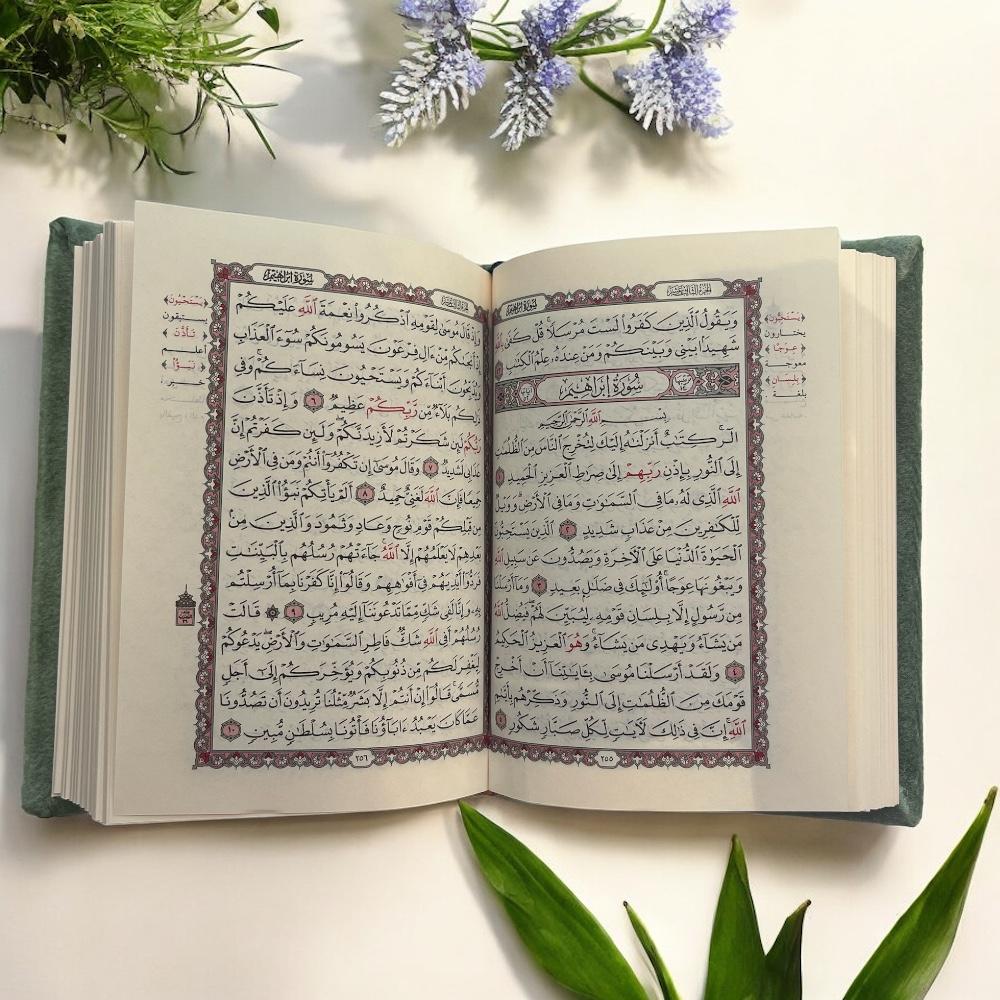 سُورَةُ إِبْرَاهِيمَ
الجزء الثالث عشر
وَيَقُولُ الَّذِينَ كَفَرُوا لَسْتَ مُرْسَلًا قُلْ كَفَى
شَهِيدًا بَيْنِي وَبَيْنَكُمْ وَمَنْ عِندَهُ عِلْمُ الْكِتَٰبِ
سُورَةُ إِبْرَاهِيمَ
بِسْمِ اللَّهِ الرَّحْمَٰنِ الرَّحِيمِ
الٓر كِتَٰبٌ أَنزَلْنَٰهُ إِلَيْكَ لِتُخْرِجَ النَّاسَ مِنَ الظُّلُمَٰتِ
إِلَى النُّورِ بِإِذْنِ رَبِّهِمْ إِلَىٰ صِرَٰطِ الْعَزِيزِ الْحَمِيدِ ١
اللَّهِ الَّذِي لَهُ مَا فِي السَّمَٰوَٰتِ وَمَا فِي الْأَرْضِ وَوَيْلٌ
لِّلْكَٰفِرِينَ مِنْ عَذَابٍ شَدِيدٍ ٢ الَّذِينَ يَسْتَحِبُّونَ
الْحَيَوٰةَ الدُّنْيَا عَلَى الْءَاخِرَةِ وَيَصُدُّونَ عَن سَبِيلِ اللَّهِ
وَيَبْغُونَهَا عِوَجًا أُولَٰئِكَ فِي ضَلَٰلٍ بَعِيدٍ ٣ وَمَا أَرْسَلْنَا
مِن رَّسُولٍ إِلَّا بِلِسَانِ قَوْمِهِ لِيُبَيِّنَ لَهُمْ فَيُضِلُّ اللَّهُ
مَن يَشَاءُ وَيَهْدِي مَن يَشَاءُ وَهُوَ الْعَزِيزُ الْحَكِيمُ
٤ وَلَقَدْ أَرْسَلْنَا مُوسَىٰ بِـَٔايَٰتِنَا أَنْ أَخْرِجْ
قَوْمَكَ مِنَ الظُّلُمَٰتِ إِلَى النُّورِ وَذَكِّرْهُم بِأَيَّىٰمِ
اللَّهِ إِنَّ فِي ذَٰلِكَ لَءَايَٰتٍ لِّكُلِّ صَبَّارٍ شَكُورٍ ٥
٢٥٥
يَسْتَحِبُّونَ
يختارون
عِوَجًا
معوجة
بِلِسَانِ
بلغة
سُورَةُ إِبْرَاهِيمَ
وَإِذْ قَالَ مُوسَىٰ لِقَوْمِهِ اذْكُرُوا نِعْمَةَ اللَّهِ عَلَيْكُمْ
إِذْ أَنجَىٰكُم مِّنْ ءَالِ فِرْعَوْنَ يَسُومُونَكُمْ سُوءَ الْعَذَابِ
وَيُذَبِّحُونَ أَبْنَاءَكُمْ وَيَسْتَحْيُونَ نِسَاءَكُمْ وَفِي
ذَٰلِكُم بَلَاءٌ مِّن رَّبِّكُمْ عَظِيمٌ ٦ وَإِذْ تَأَذَّنَ
رَبُّكُمْ لَئِن شَكَرْتُمْ لَأَزِيدَنَّكُمْ وَلَئِن كَفَرْتُمْ إِنَّ
عَذَابِي لَشَدِيدٌ ٧ وَقَالَ مُوسَىٰ إِن تَكْفُرُوا أَنتُمْ وَمَن فِي الْأَرْضِ
جَمِيعًا فَإِنَّ اللَّهَ لَغَنِيٌّ حَمِيدٌ ٨ أَلَمْ يَأْتِكُمْ نَبَؤُا الَّذِينَ
مِن قَبْلِكُمْ قَوْمِ نُوحٍ وَعَادٍ وَثَمُودَ وَالَّذِينَ مِن
بَعْدِهِمْ لَا يَعْلَمُهُمْ إِلَّا اللَّهُ جَاءَتْهُمْ رُسُلُهُم بِالْبَيِّنَٰتِ
فَرَدُّوا أَيْدِيَهُمْ فِي أَفْوَٰهِهِمْ وَقَالُوا إِنَّا كَفَرْنَا بِمَا أُرْسِلْتُم
بِهِ وَإِنَّا لَفِي شَكٍّ مِّمَّا تَدْعُونَنَا إِلَيْهِ مُرِيبٍ ٩ ۞ قَالَتْ
رُسُلُهُمْ أَفِي اللَّهِ شَكٌّ فَاطِرِ السَّمَٰوَٰتِ وَالْأَرْضِ يَدْعُوكُمْ
لِيَغْفِرَ لَكُم مِّن ذُنُوبِكُمْ وَيُؤَخِّرَكُمْ إِلَىٰ أَجَلٍ
مُّسَمًّى قَالُوا إِنْ أَنتُمْ إِلَّا بَشَرٌ مِّثْلُنَا تُرِيدُونَ أَن تَصُدُّونَا
عَمَّا كَانَ يَعْبُدُ ءَابَاؤُنَا فَأْتُونَا بِسُلْطَٰنٍ مُّبِينٍ ١٠
٢٥٦
يَسْتَحْيُونَ
يستبقون
تَأَذَّنَ
أعلم
نَبَؤُا
خبر